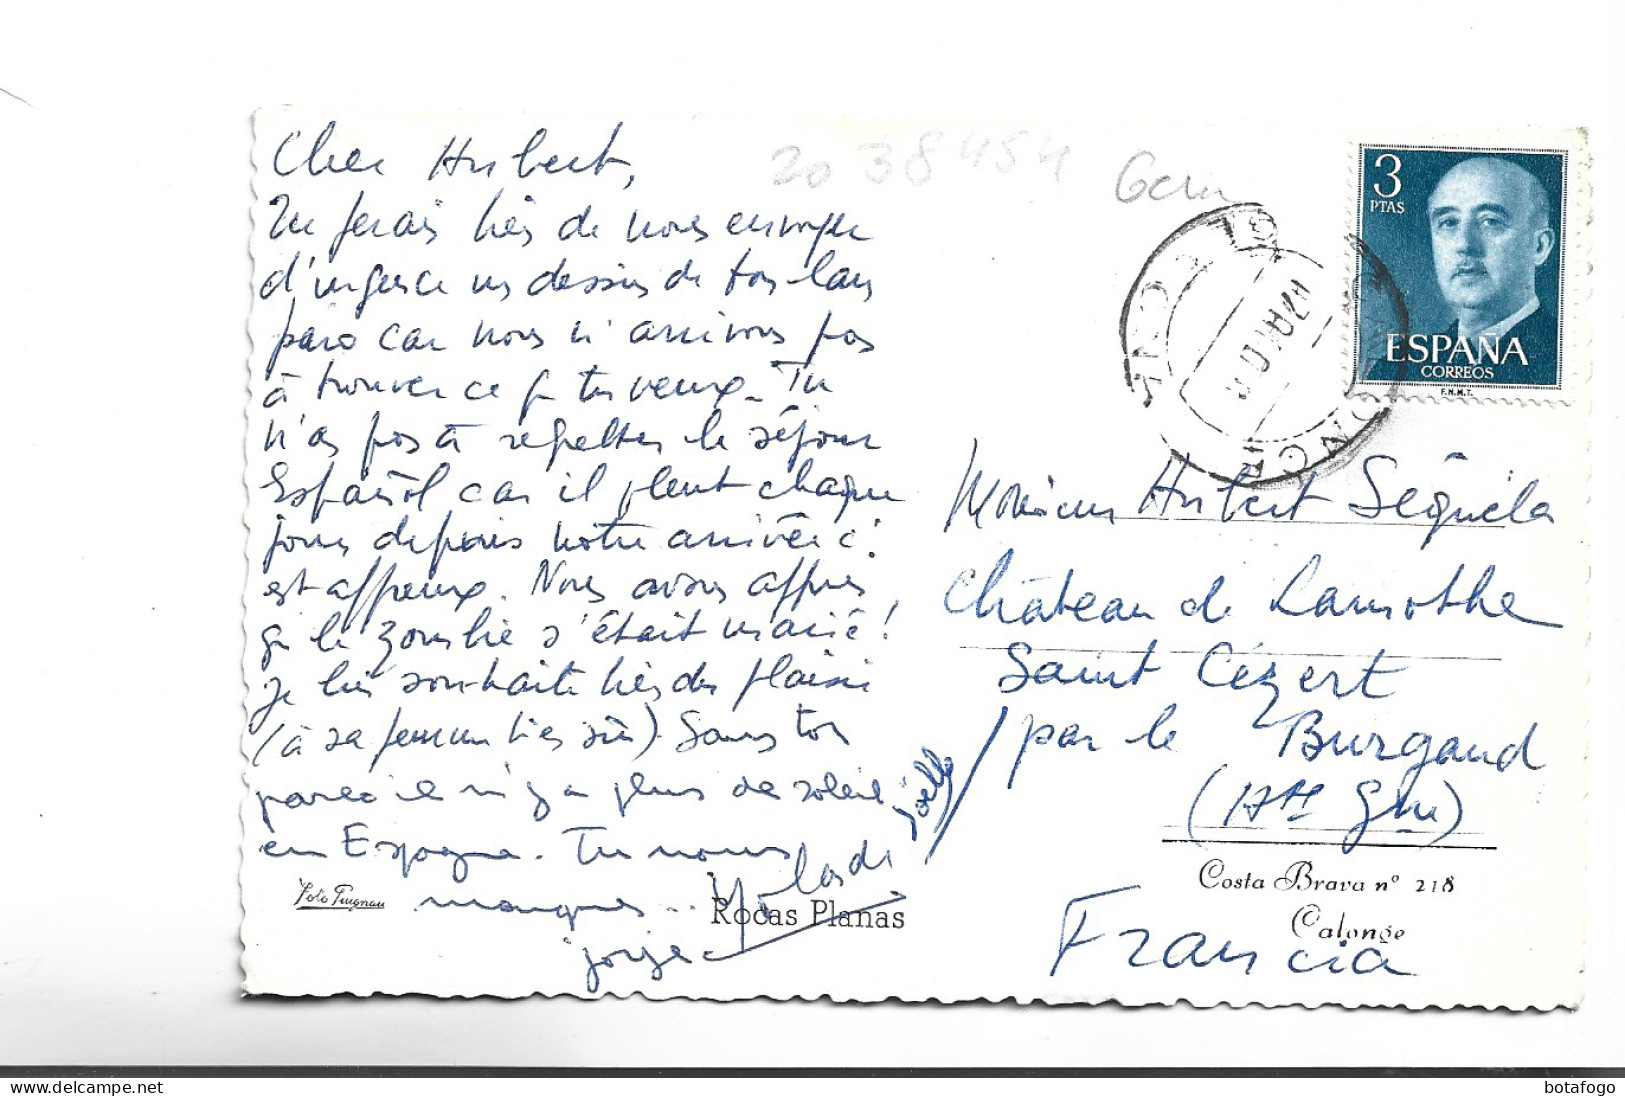 Cher Hubert,
Tu ferais très de nous envoyer
d'urgence un dessin de ton lance
car nous n'arrivons pas
à trouver ce q tu veux. Tu
n'as pas à regretter le séjour
Español car il pleut chaque
jour depuis notre arrivée c'
est affreux. Nous avons appris
q le zombie s'était marié!
je lui souhaite très de plaisir
(à sa femme très sûr) Sans toi
il n'y a plus de soleil
en Espagne. Tu nous
manques..
jorge
Joëlle
Foto Puignau
Rocas Planas
20 38454
Gerona
3
PTAS
ESPAÑA
CORREOS
F.N.M.T.
CALONGE
Monsieur Hubert Séquéla
Château de Lamothe
Saint Cézert
par le Burgaud
(Hte Gne)
Costa Brava nº 218
Calonge
Francia
botafogo